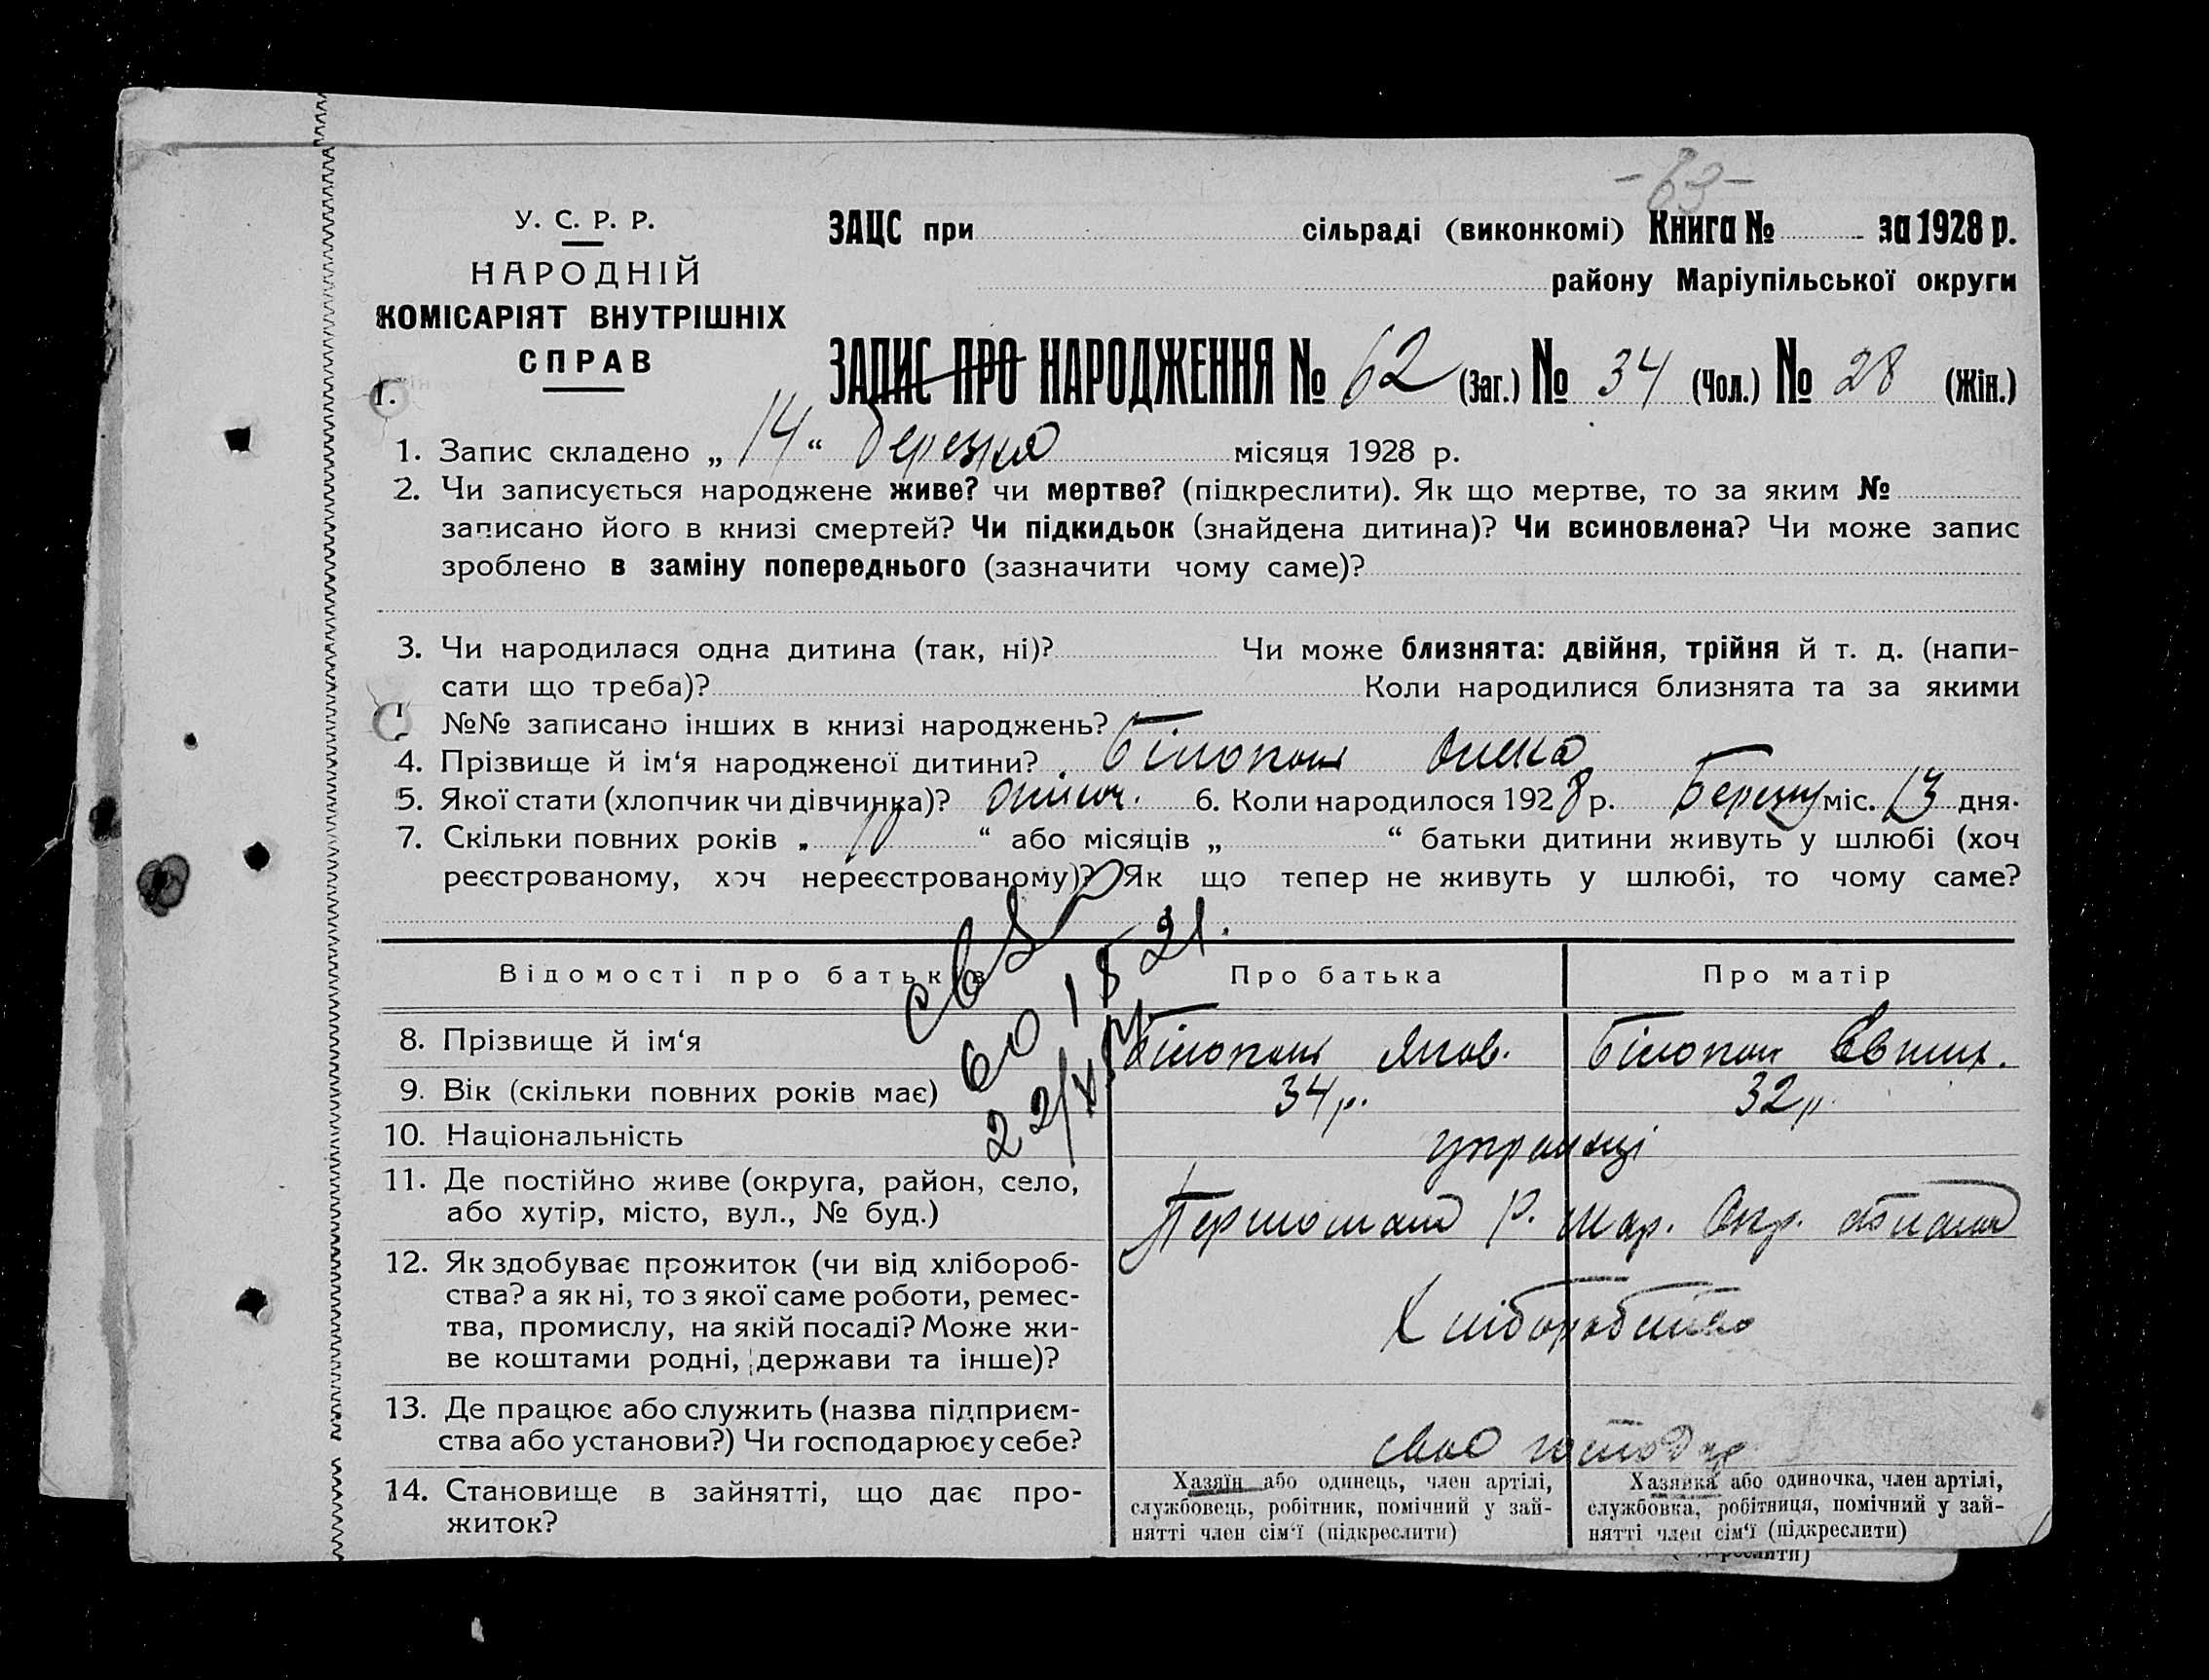 -63-
У. С. Р. Р.
НАРОДНІЙ
КОМІСАРІЯТ ВНУТРІШНІХ
СПРАВ
ЗАЦС при сільраді (виконкомі) Книга № за 1928 р.
району Маріупільської округи
ЗАПИС ПРО НАРОДЖЕННЯ № 62 (Заг.) № 34 (Чол.) № 28 (Жін.)
1. Запис складено „ 14 “ березня місяця 1928 р.
2. Чи записується народжене живе? чи мертве? (підкреслити). Як що мертве, то за яким №
записано його в книзі смертей? Чи підкидьок (знайдена дитина)? Чи всиновлена? Чи може запис
зроблено в заміну попереднього (зазначити чому саме)?
3. Чи народилася одна дитина (так, ні)? Чи може близнята: двійня, трійня й т. д. (напи-
сати що треба)? Коли народилися близнята та за якими
№№ записано інших в книзі народжень?
4. Прізвище й ім‘я народженої дитини?
5. Якої стати (хлопчик чи дівчинка)? 6. Коли народилося 1928 р. Березня міс. 13 дня.
7. Скільки повних років „ 10 “ або місяців „ “ батьки дитини живуть у шлюбі (хоч
реєстрованому, хоч нереєстрованому)? Як що тепер не живуть у шлюбі, то чому саме?
Відомості про батьків Про батька Про матір
8. Прізвище й ім‘я
9. Вік (скільки повних років має) 34 р. 32 р.
10. Національність українці
11. Де постійно живе (округа, район, село,
або хутір, місто, вул., № буд.)
Р. Мар. Окр.
12. Як здобуває прожиток (чи від хлібороб-
ства? а як ні, то з якої саме роботи, ремес-
тва, промислу, на якій посаді? Може жи-
ве коштами родні, держави та інше)?
Хліборобство
13. Де працює або служить (назва підприєм-
ства або установи?) Чи господарює у себе?
14. Становище в зайнятті, що дає про-
житок?
Хазяїн або одинець, член артілі,
службовець, робітник, помічний у зай-
нятті член сім‘ї (підкреслити)
Хазяйка або одиночка, член артілі,
службовка, робітниця, помічний у зай-
нятті член сім‘ї (підкреслити)